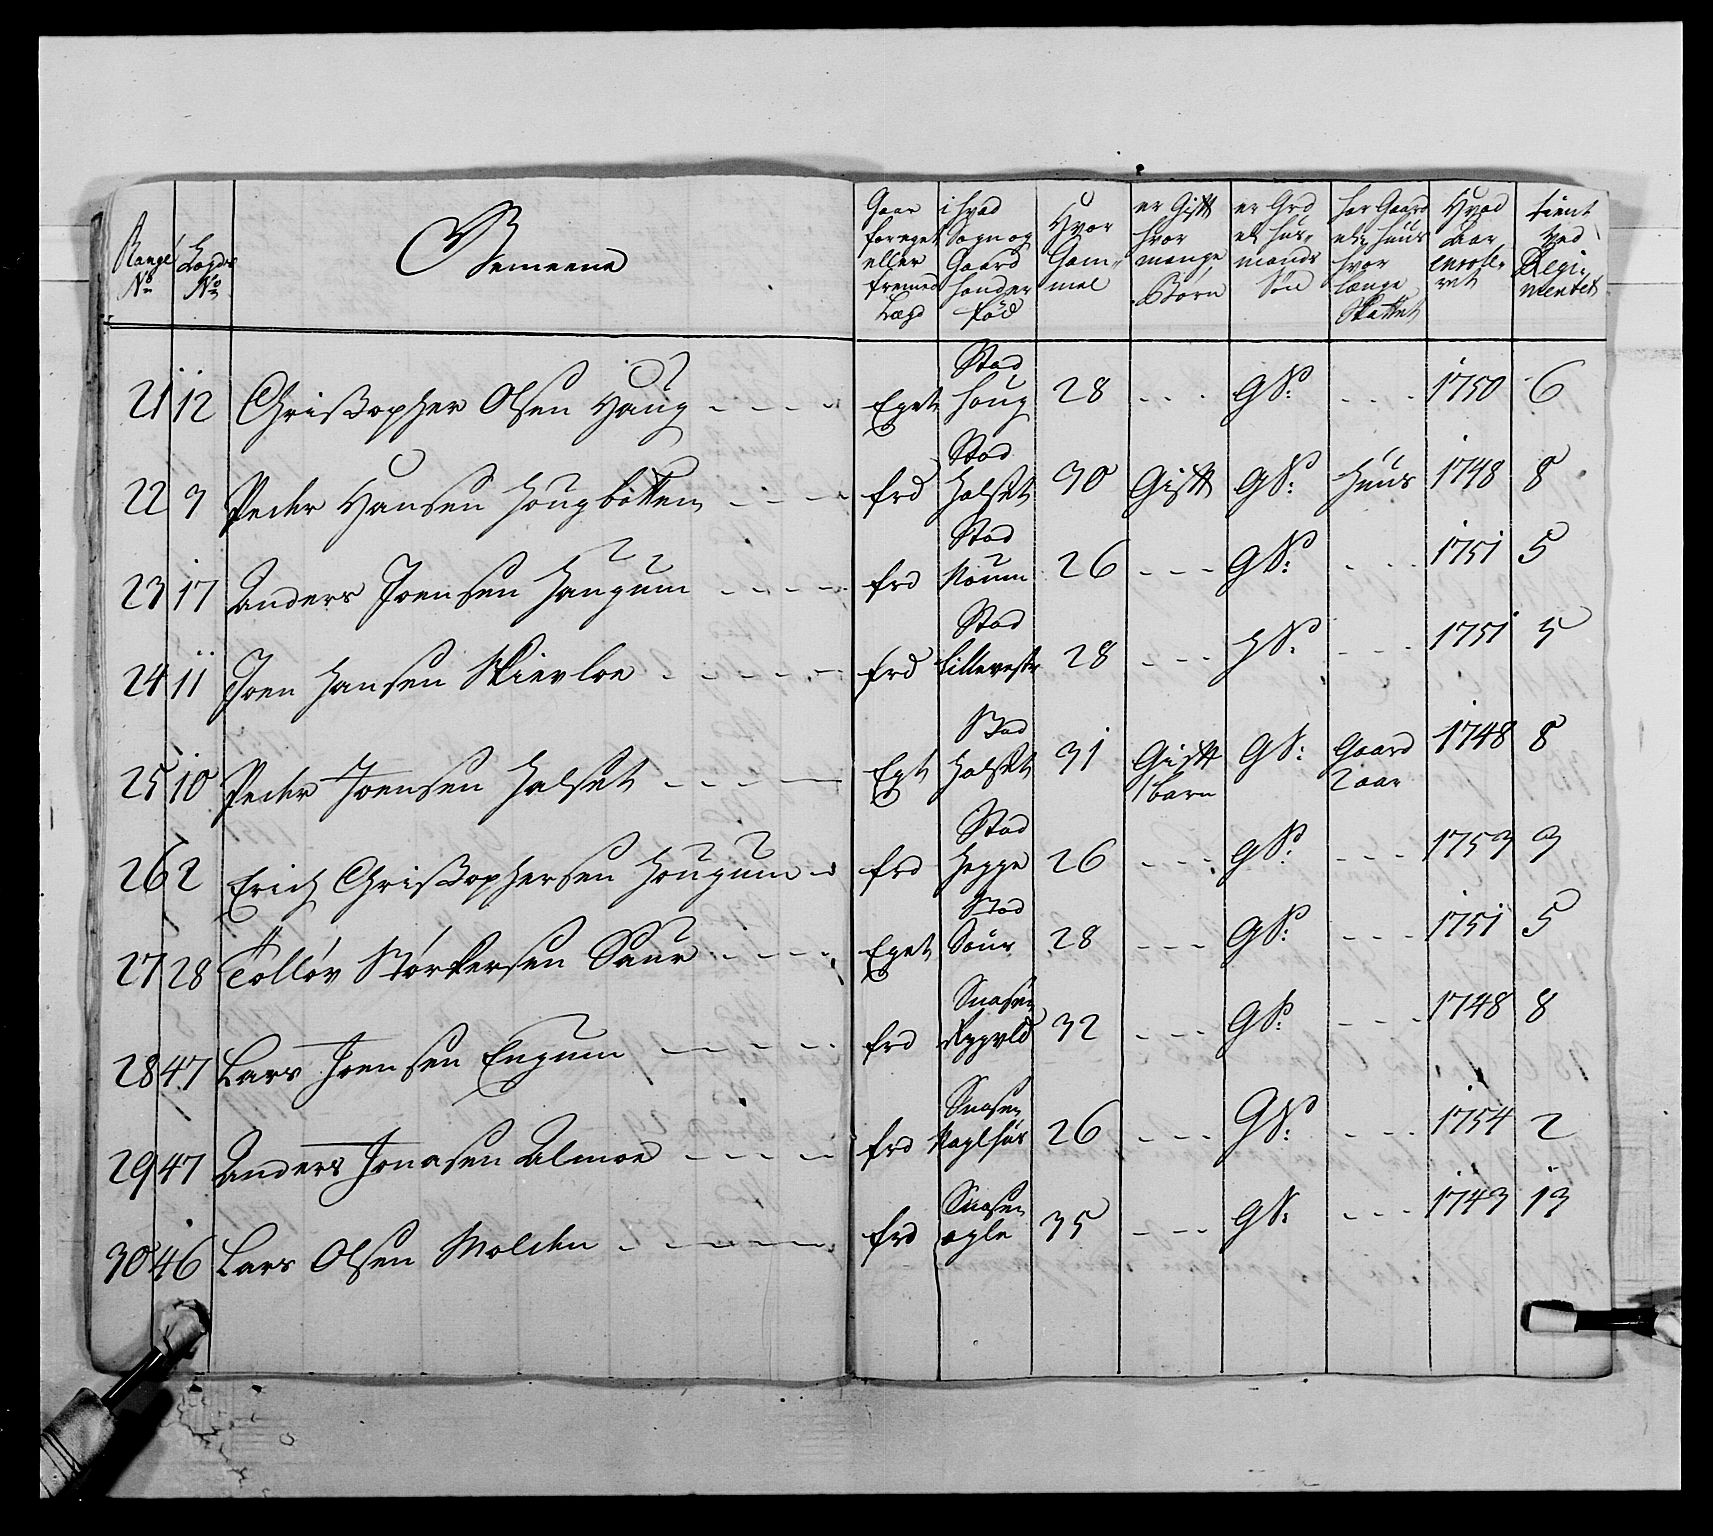 Range No Lægds No Gemeene Gaar foreget eller fremed Lægd i hvad Sogn og Gaard hand er fød Hvor Gam= mel er Gift hvor mange Børn er Grd el. hus= mands Søn har Gaard el. huus hvor længe Skattet Hvad Aar enrole= ret tient ved Regi= mentet
21 12 Christopher Olsen Haug - - - - Eget Stod Houg 28 - - - GS: - - - 1750 6
22 3 Peder Hansen Hougbotten - - - frd Stod Halset 30 Gift GS: Huus 1748 8
23 17 Anders Joensen Haugum - - - - frd Stod 26 - - - GS: - - - 1751 5
24 11 Joen Hansen Skievloe - - - - - frd Stod 28 - - - HS: - - - 1751 5
25 10 Peder Joensen Halset - - - - Eget Stod Halset 31 Gift 1 barn GS: Gaard 2 aar 1748 8
26 2 Erich Christophersen Hougum - frd Stod Hegge 26 - - - GS: - - - 1753 3
27 28 Tolløv Størkersen Saur - - - - Eget Stod Saur 28 - - - GS: - - - 1751 5
28 47 Lars Joensen Engum - - - - frd Snasen 32 - - - GS: - - - 1748 8
29 47 Anders Jonasen Almoe - - - - frd Snasen 26 - - - GS: - - - 1754 2
30 46 Lars Olsen Molden - - - - - frd Snasen agle 35 - - - GS: - - - 1743 13